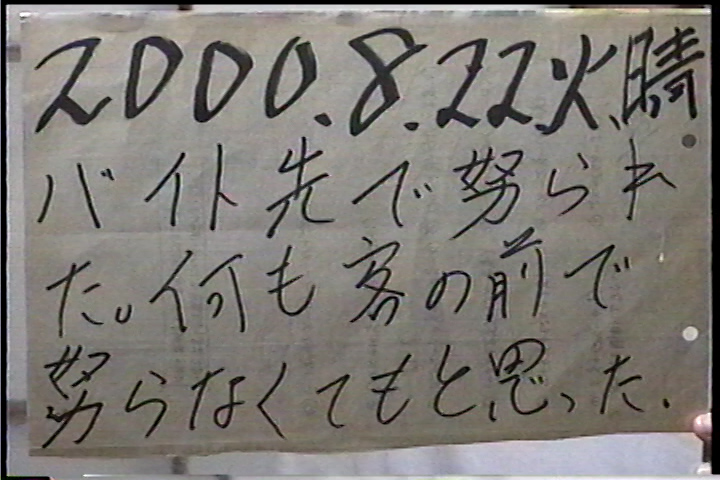 2000.8.22.火.晴
バイト先で努られ
た。何も客の前で
努らなくてもと思った.